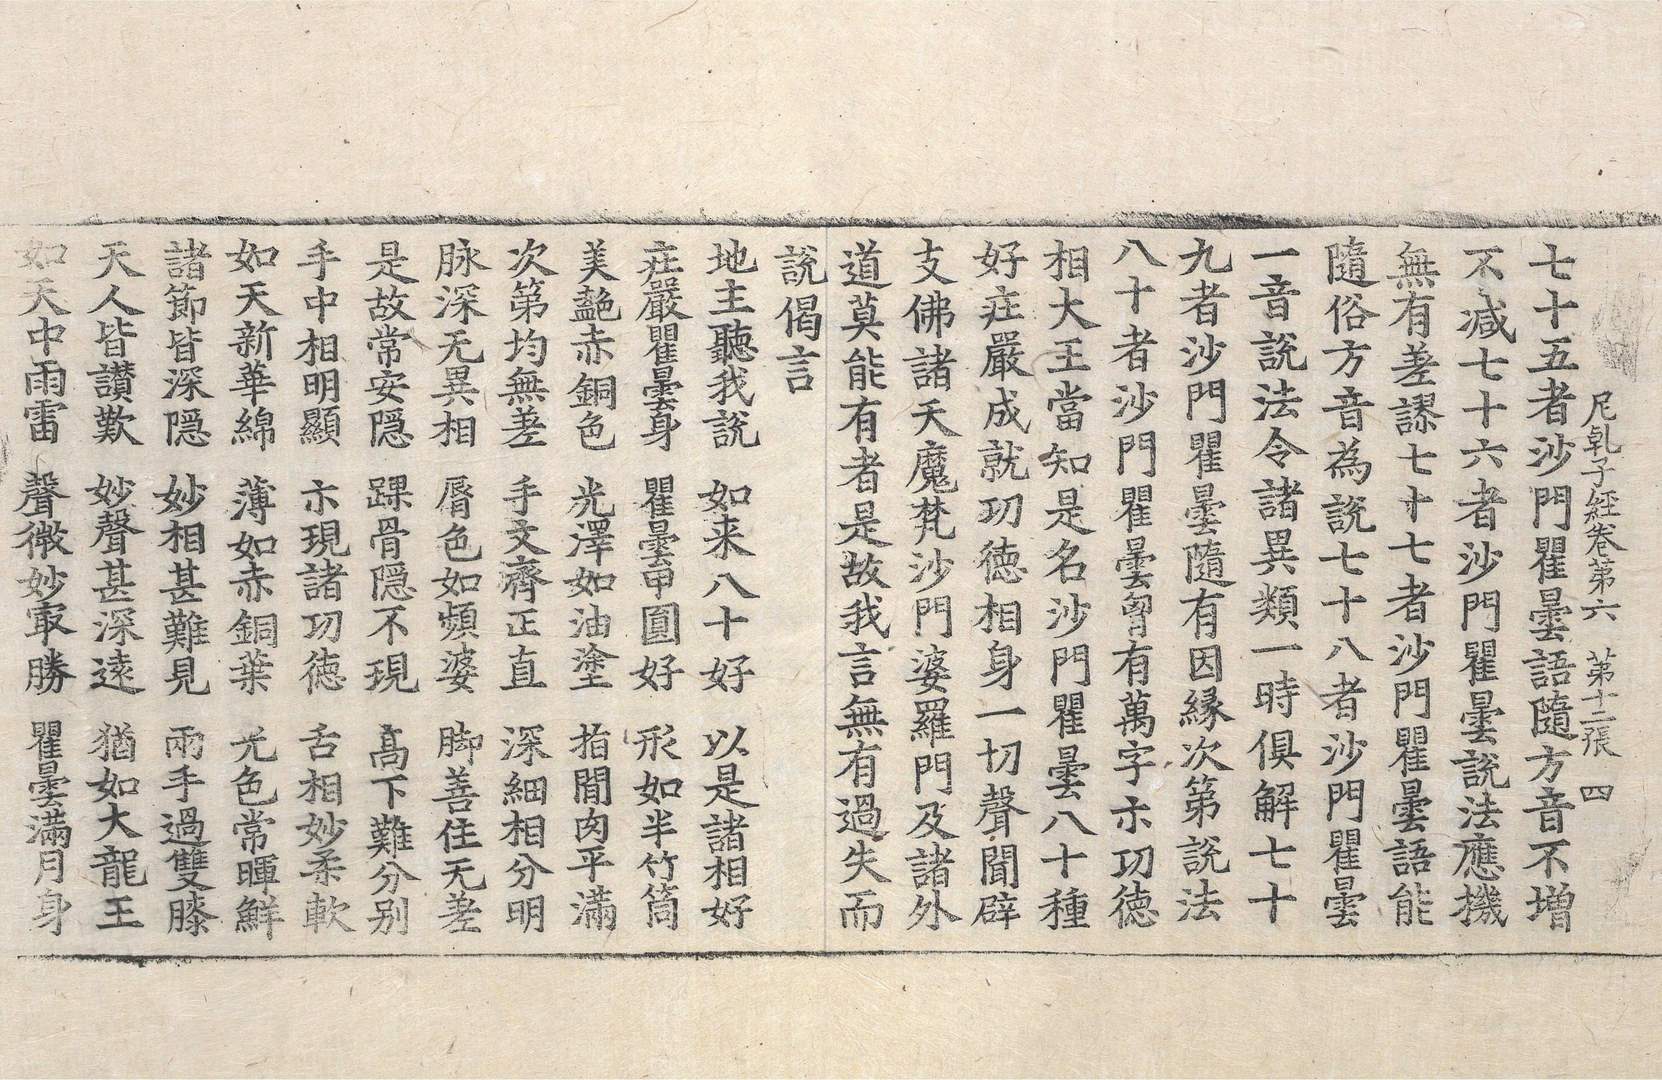 尼乹子經卷第六　第十二張　四
七十五者沙門瞿曇語隨方音不增
不减七十六者沙門瞿曇說法應機
無有差謬七十七者沙門瞿曇語能
隨俗方音為說七十八者沙門瞿曇
一音說法令諸異類一時俱解七十
九者沙門瞿曇隨有因緣次第說法
八十者沙門瞿曇匈有萬字示功德
相大王當知是名沙門瞿曇八十種
好㽵嚴成就功德相身一切聲聞辟
支佛諸天魔梵沙門婆羅門及諸外
道莫能有者是故我言無有過失而
說偈言
地主聽我說　如来八十好　以是諸相好
㽵嚴瞿曇身　瞿曇甲圓好　形如半竹筒
美艶赤銅色　光澤如油塗　指閒肉平滿
次第均無差　手文齊正直　深細相分明
脉深无異相　脣色如頻婆　脚善住无差
是故常安隱　踝骨隱不現　高下難分别
手中相明顯　示現諸功德　舌相妙柔軟
如天新華綿　薄如赤銅葉　光色常暉鮮
諸節皆深隱　妙相甚難見　兩手過雙膝
天人皆讃歎　妙聲甚深遠　猶如大龍王
如天中雨雷　聲微妙㝡勝　瞿曇滿月身